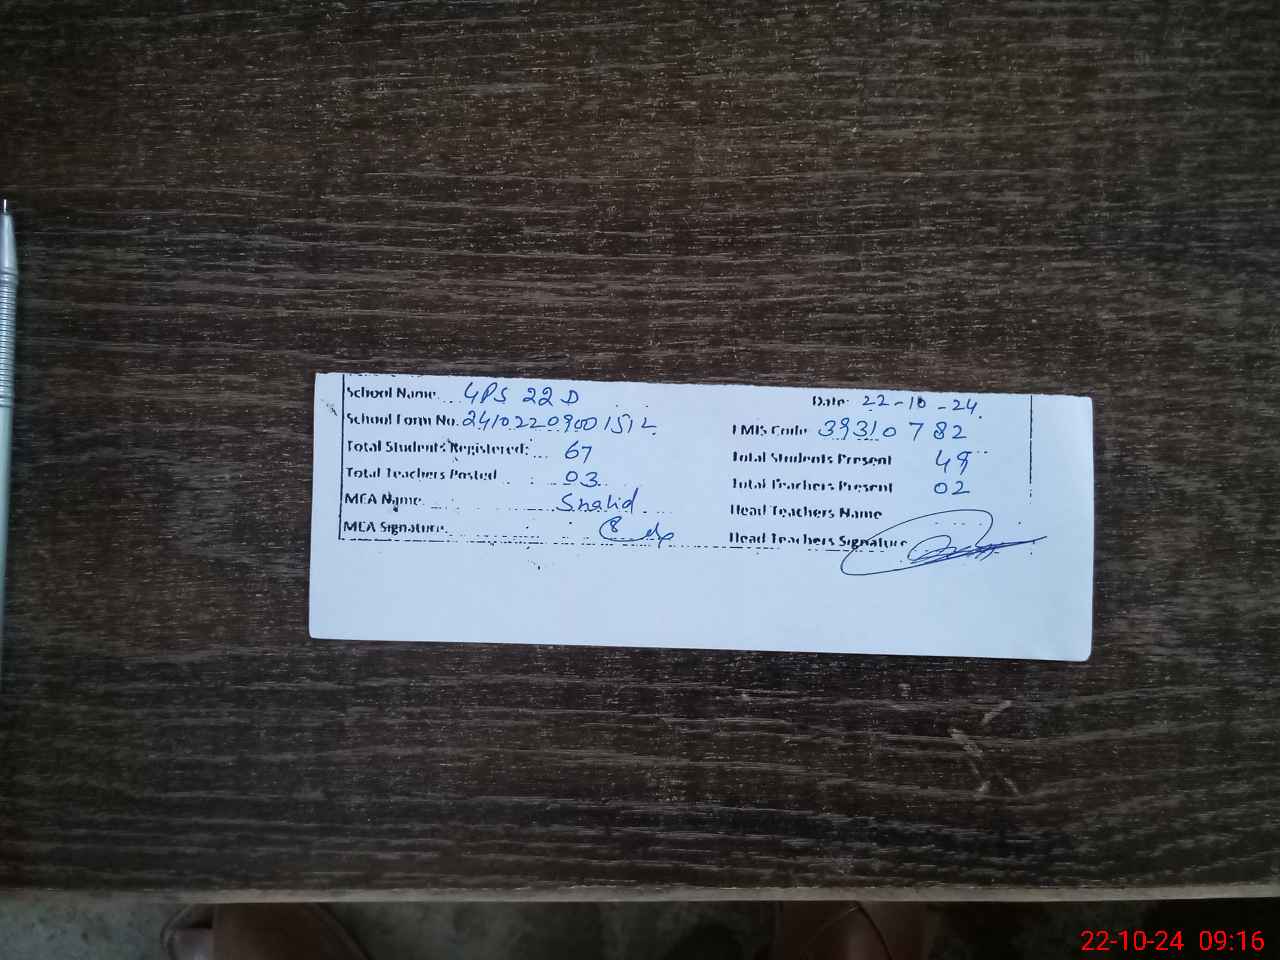 School Name GPS 22 D Date: 22-10-24
School Form No. 241022090015 EMIS Code 39310782
Total Students Registered: 67 Total Students Present 49
Total Teachers Posted 03 Total Teachers Present 02
MEA Name Shahid Head Teachers Name
MEA Signature Head Teachers Signature
22-10-24 09:16